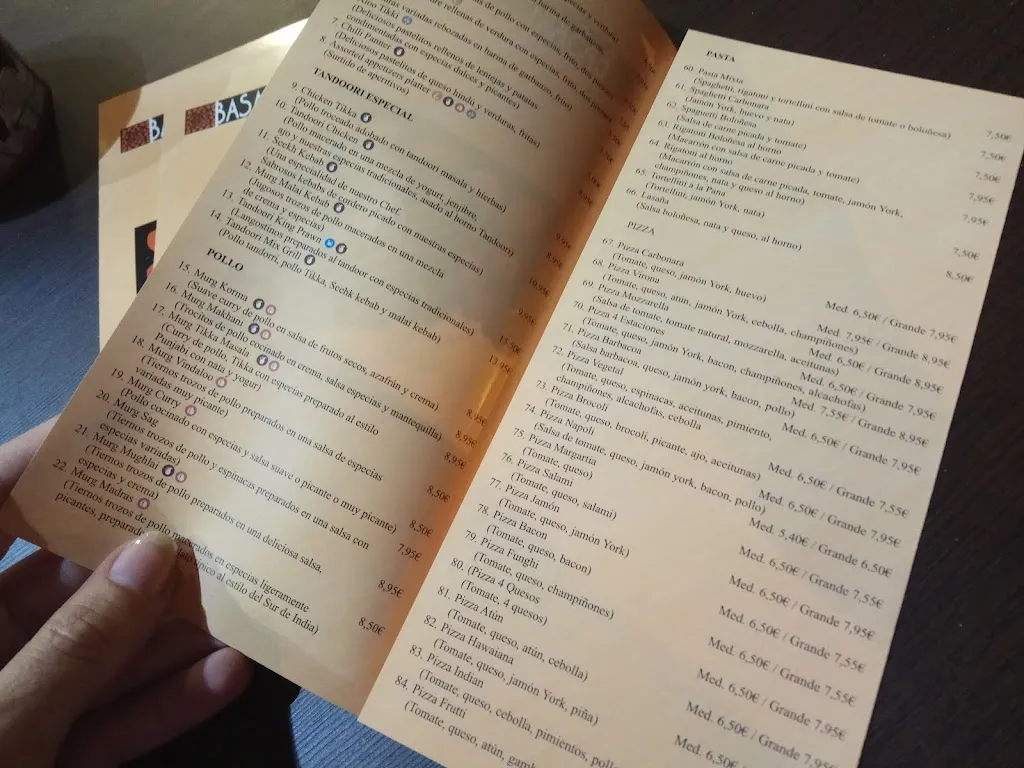 BASA
B.
variadas rebozadas en harina de garbanzo, frito)
Aloo Tikki
(Deliciosos pastelitos rellenos de lentejas y patatas
condimentadas con especias dulces y picantes)
7. Chilli Panner
(Deliciosos pastelitos de queso hindú y verduras, fritas)
8. Assorted appetizers platter
(Surtido de aperitivos)
TANDOORI ESPECIAL
9. Chicken Tikka
(Pollo troceado adobado con tandoori masala y hierbas)
9,95€
10. Tandoori Chicken
(Pollo macerado en una mezcla de yogurt, jenjibre,
ajo y nuestras especias tradicionales, asado al horno Tandoori)
8,95€
11. Seekh Kebab
(Una especialidad de nuestro Chef.
Sabrosos kebabs de cordero picado con nuestras especias)
10,95€
12. Murg Malai Kebab
(Jugosos trozos de pollo macerados en una mezcla
de crema y especias)
9,95€
13. Tandoori King Prawn
(Langostinos preparados al tandoor con especias tradicionales)
15,50€
14. Tandoori Mix Grill
(Pollo tandoori, pollo Tikka, Seehk kebab y malai kebab)
13,95€
POLLO
15. Murg Korma
(Suave curry de pollo en salsa de frutos secos, azafrán y crema)
8,95€
16. Murg Makhani
(Trocitos de pollo cocinado en crema, salsa especias y mantequilla)
8,95€
17. Murg Tikka Masala
(Curry de pollo, Tikka con especias preparado al estilo
Punjabi con nata y yogur)
8,95€
18. Murg Vindaloo
(Tiernos trozos de pollo preparados en una salsa de especias
variadas muy picante)
8,50€
19. Murg Curry
(Pollo cocinado con especias y salsa suave o picante o muy picante)
8,50€
20. Murg Sag
(Tiernos trozos de pollo y espinacas preparados en una salsa con
especias variadas)
7,95€
21. Murg Mughlai
(Tiernos trozos de pollo preparados en una deliciosa salsa,
especias y crema)
8,95€
22. Murg Madras
(Tiernos trozos de pollo macerados en especias ligeramente
picantes, preparado típico al estilo del Sur de India)
8,50€
PASTA
60. Pasta Mixta
(Spaghetti, rigatoni y tortellini con salsa de tomate o boloñesa)
7,50€
61. Spaghetti Carbonara
(Jamón York, huevo y nata)
7,50€
62. Spaguetti Boloñesa
(Salsa de carne picada y tomate)
7,50€
63. Rigatoni Boloñesa al horno
(Macarrón con salsa de carne picada y tomate)
7,95€
64. Rigatoni al horno
(Macarrón con salsa de carne picada, tomate, jamón York,
champiñones, nata y queso al horno)
7,95€
65. Tortellini a la Pana
(Tortellini, jamón York, nata)
7,50€
66. Lasaña
(Salsa boloñesa, nata y queso, al horno)
8,50€
PIZZA
67. Pizza Carbonara
(Tomate, queso, jamón York, huevo)
Med. 6,50€ / Grande 7,95€
68. Pizza Virona
(Tomate, queso, atún, jamón York, cebolla, champiñones)
Med. 7,95€ / Grande 8,95€
69. Pizza Mozzarella
(Salsa de tomate, tomate natural, mozzarella, aceitunas)
Med. 6,50€ / Grande 8,95€
70. Pizza 4 Estaciones
(Tomate, queso, jamón York, bacon, champiñones, alcachofas)
Med. 6,50€ / Grande 7,95€
71. Pizza Barbacoa
(Salsa barbacoa, queso, jamón york, bacon, pollo)
Med. 7,55€ / Grande 8,95€
72. Pizza Vegetal
(Tomate, queso, espinacas, aceitunas, pimiento,
champiñones, alcachofas, cebolla
Med. 6,50€ / Grande 7,95€
73. Pizza Brocoli
(Tomate, queso, brocoli, picante, ajo, aceitunas)
Med. 6,50€ / Grande 7,55€
74. Pizza Napoli
(Salsa de tomate, queso, jamón york, bacon, pollo)
Med. 6,50€ / Grande 7,95€
75. Pizza Margarita
(Tomate, queso)
Med. 5,40€ / Grande 6,50€
76. Pizza Salami
(Tomate, queso, salami)
Med. 6,50€ / Grande 7,55€
77. Pizza Jamón
(Tomate, queso, jamón York)
Med. 6,50€ / Grande 7,95€
78. Pizza Bacon
(Tomate, queso, bacon)
Med. 6,50€ / Grande 7,55€
79. Pizza Funghi
(Tomate, queso, champiñones)
Med. 6,50€ / Grande 7,55€
80. (Pizza 4 Quesos
(Tomate, 4 quesos)
Med. 6,50€ / Grande 7,95€
81. Pizza Atún
(Tomate, queso, atún, cebolla)
Med. 6,50€ / Grande 7,95€
82. Pizza Hawaiana
(Tomate, queso, jamón York, piña)
Med. 6,50€
83. Pizza Indian
(Tomate, queso, cebolla, pimientos, pollo
84. Pizza Frutti
(Tomate, queso, atún, gamb